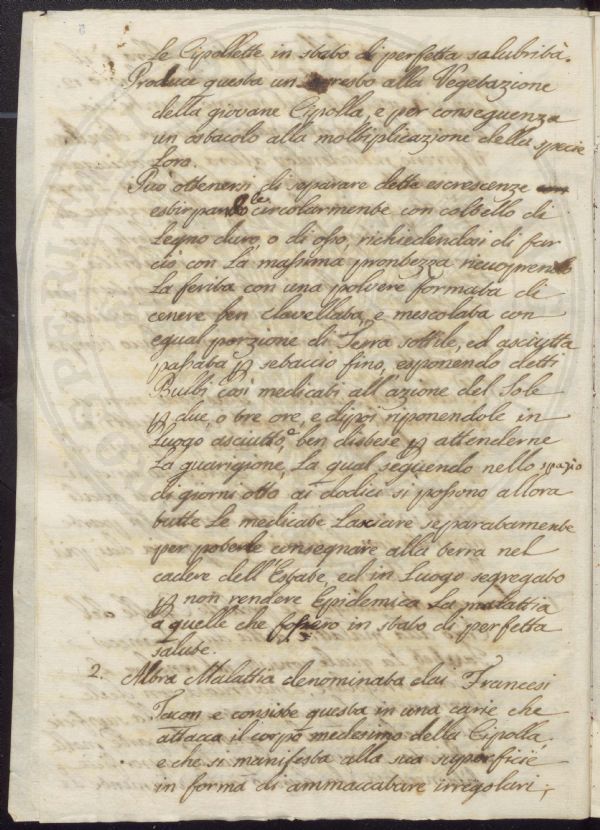 le Cipollette in stato di perfetta salubrità.
Produce questa un arresto alla Vegetazione
della giovane Cipolla, e per conseguenza
un ostacolo alla moltiplicazione della specie
Loro.
Può ottenersi di separare dette escrescenze
estirpandole circolarmente con coltello di
Legno duro, o di osso, richiedendosi di far
ciò con La massima prontezza ricuoprendo
La ferita con una polvere formata di
cenere ben clavellata, e mescolata con
egual porzione di Terra sottile, ed asciutta
passata p setaccio fino, esponendo detti
Bulbi così medicati all'azione del Sole
p due, o tre ore, e dipoi riponendole in
Luogo asciutto, e ben distese p attenderne
La guarigione, La qual seguendo nello spazio
di giorni otto ai dodici si possono allora
tutte Le medicate Lasciare separatamente
per poterle consegnare alla terra nel
cadere dell'Estate, ed in Luogo segregato
p non rendere Epidemica La malattia
a quelle che fossero in stato di perfetta
salute.
2. Altra Malattia denominata dai Francesi
Tacon e consiste questa in una carie che
attacca il corpo medesimo della Cipolla,
e che si manifesta alla sua superficie
in forma di ammaccature irregolari;